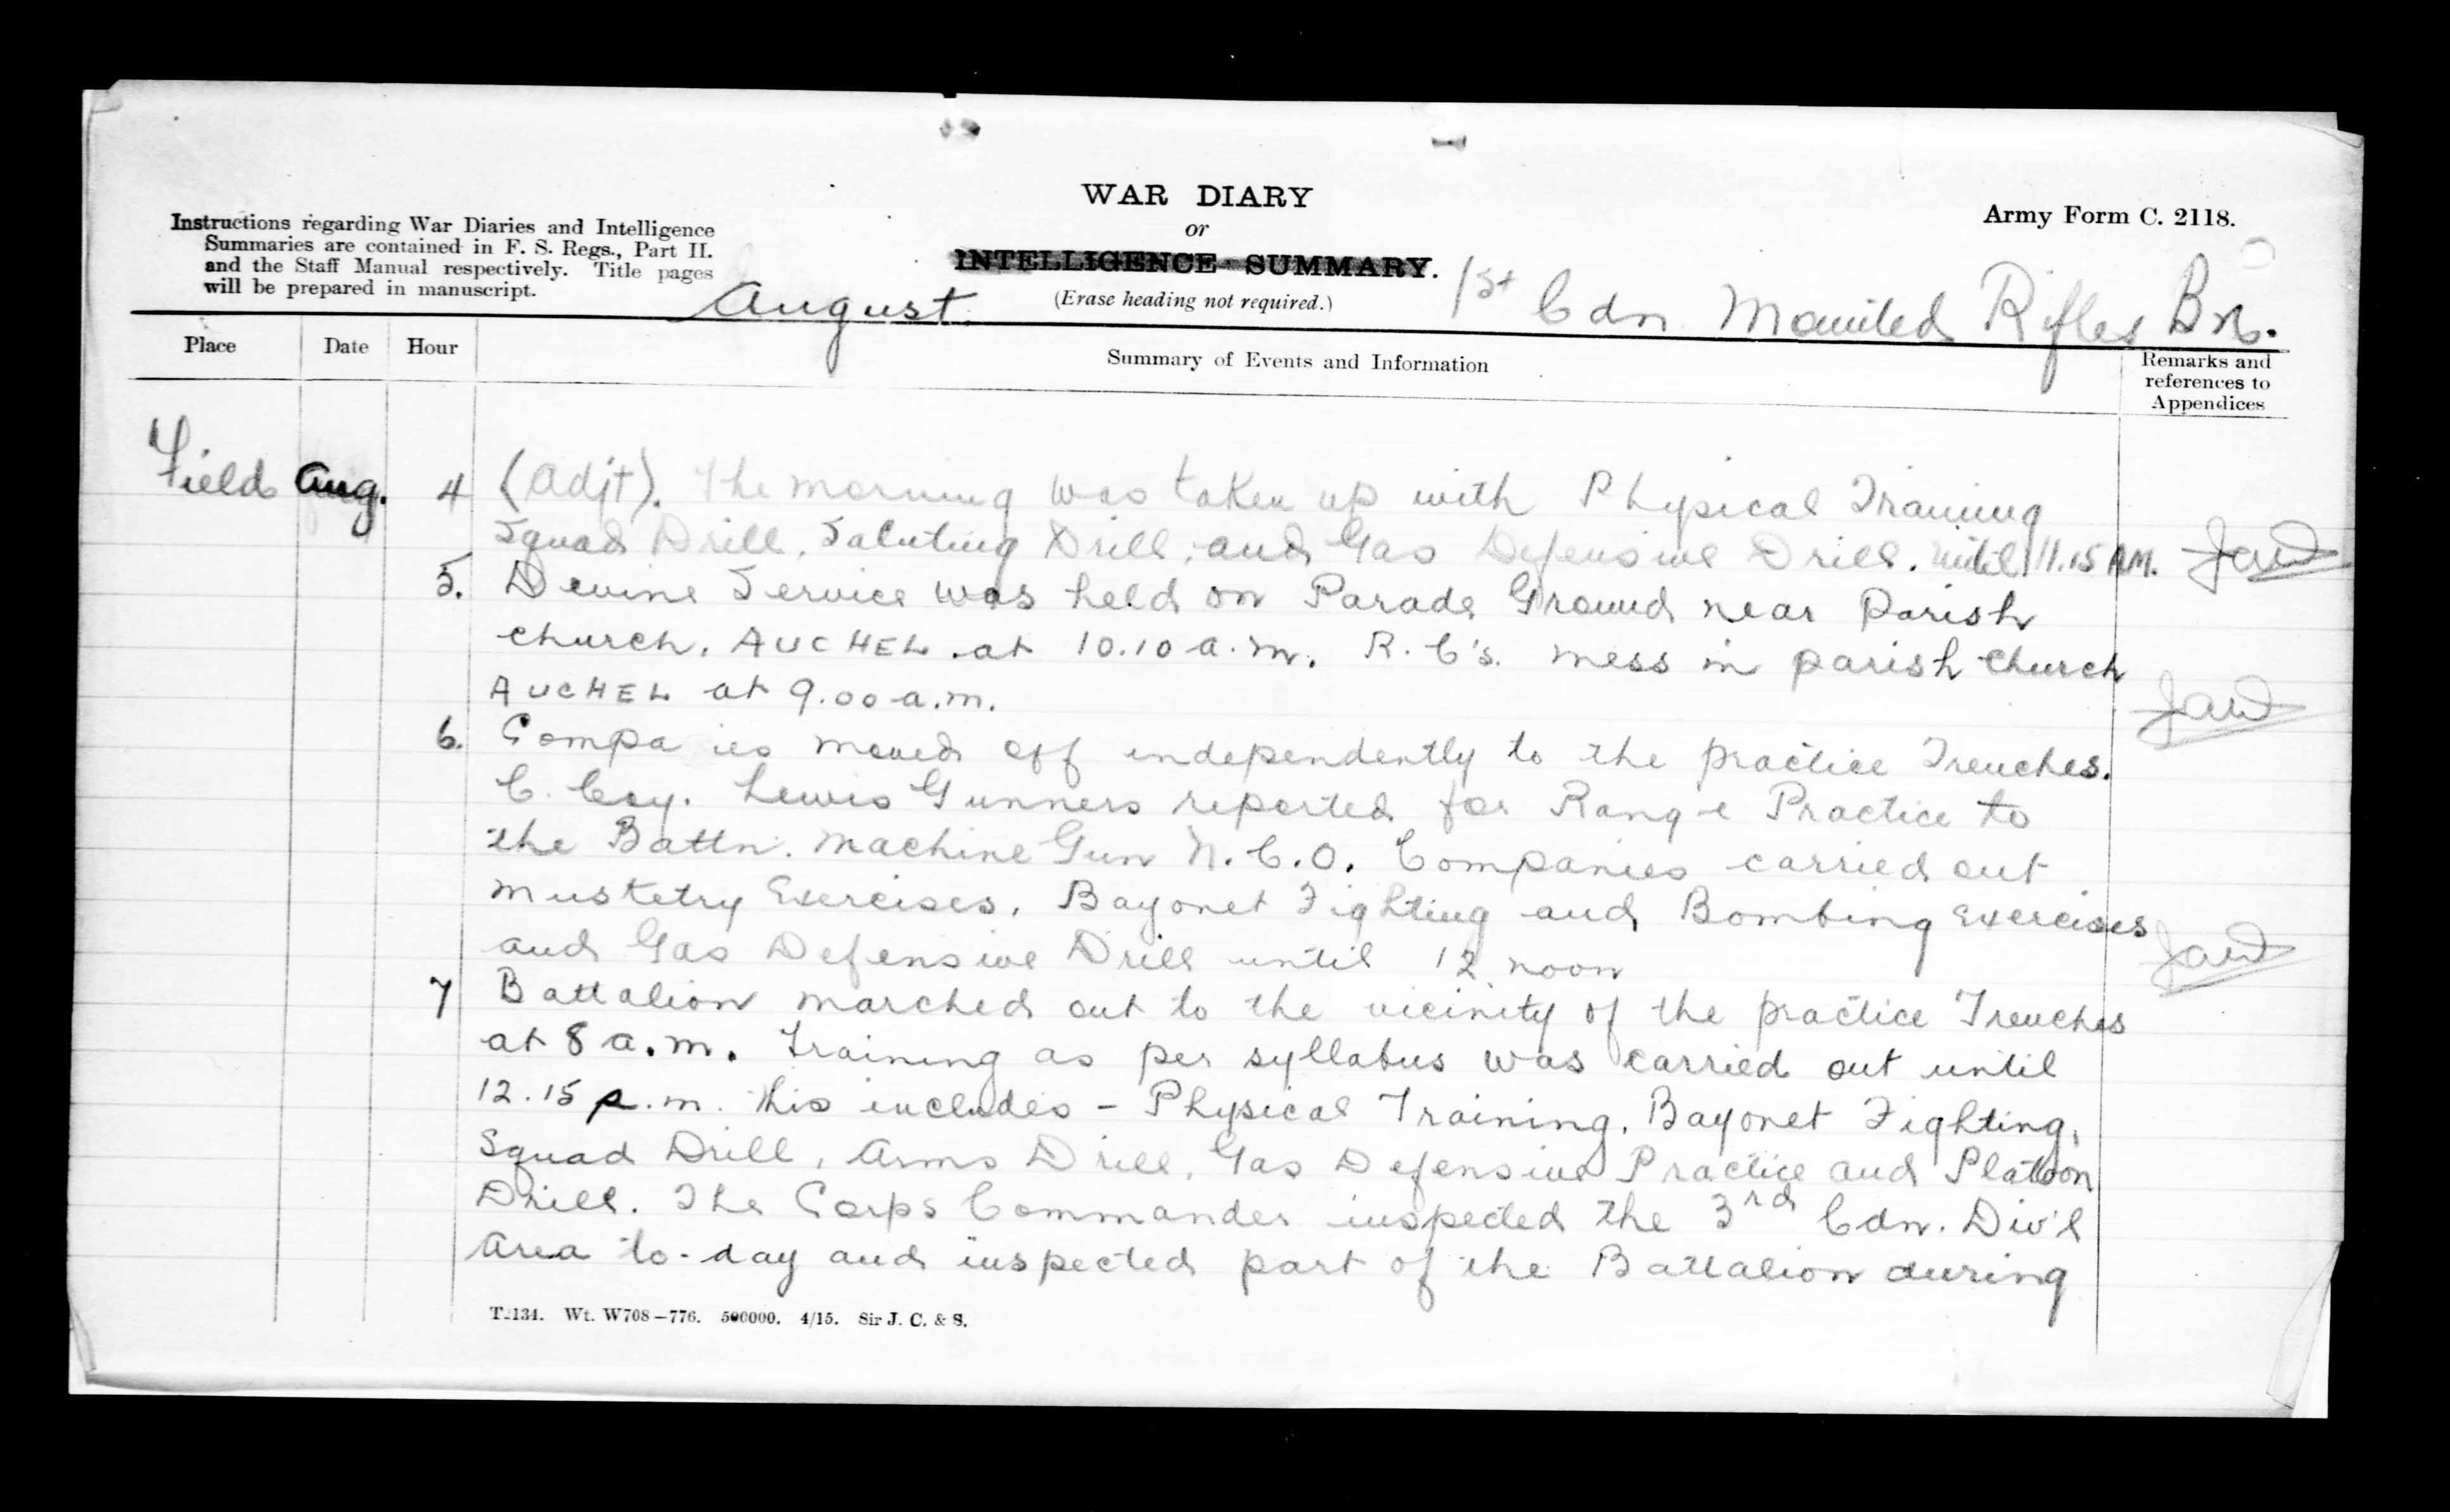 WAR DIARY
or
INTELLIGENCE SUMMARY.
(Erase heading not required.)
Army Form C. 2118.
Instructions regarding War Diaries and Intelligence
Summaries are contained in F. S. Regs., Part II.
and the Staff Manual respectively. Title pages
will be prepared in manuscript.
August.
1st Cdn Mounted Rifles Bn.
Place Date Hour Summary of Events and Information Remarks and
references to
Appendices
Field Aug. 4 (Adjt). The morning was taken up with Physical Training
Squad Drill, Saluting Drill, and Gas Defensive Drill. until 11.15 AM.
5. Devine Service was held on Parade Ground near Parish
church, AUCHEL at 10.10 a.m. R.C's. mess in parish church
AUCHEL at 9.00 a.m.
6. Compa ies moved off independently to the practice Trenches.
C. Coy. Lewis Gunners reported for Range Practice to
the Battn. Machine Gun N.C.O. Companies carried out
Musketry Exercises, Bayonet Fighting and Bombing Exercises
and Gas Defensive Drill until 12 noon
7 Battalion marched out to the vicinity of the practice Trenches
at 8 a.m. Training as per syllabus was carried out until
12.15 p.m. this includes - Physical Training, Bayonet Fighting,
Squad Drill, Arms Drill, Gas Defensive Practice and Platoon
Drill. The Corps Commander inspected the 3rd Cdn. Div'l
Area to-day and inspected part of the Battalion during
T.134. Wt. W708-776. 500000. 4/15. Sir J. C. & S.